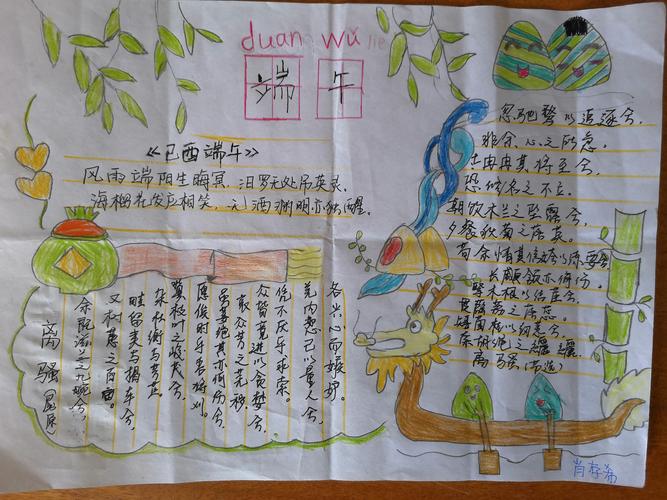 duan wu jie
端午
《己酉端午》
风雨端阳生晦冥，汨罗无处吊英灵，
海榴花发应相笑，无酒渊明亦独醒。
离骚 屈原
余既滋兰之九畹兮，
又树蕙之百亩。
畦留夷与揭车兮，
杂杜衡与芳芷。
冀枝叶之峻茂兮，
愿俟时乎吾将刈。
虽萎绝其亦何伤兮，
哀众芳之芜秽。
众皆竞进以贪婪兮，
凭不厌乎求索。
羌内恕己以量人兮，
各兴心而嫉妒。
忽驰骛以追逐兮，
非余心之所急。
老冉冉其将至兮，
恐修名之不立。
朝饮木兰之坠露兮，
夕餐秋菊之落英。
苟余情其信姱以练要兮，
长顑颔亦何伤。
擥木根以结茝兮，
贯薜荔之落蕊。
矫菌桂以纫蕙兮，
索胡绳之纚纚。
离骚（节选）
肖存希